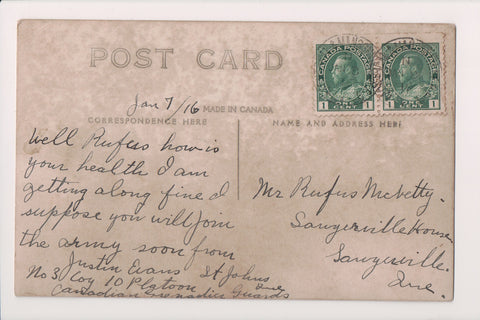 POST CARD
Jan 7/16
MADE IN CANADA
CORRESPONDENCE HERE
NAME AND ADDRESS HERE
CANADA POSTAGE
1 1
CANADA POSTAGE
1 1
Well Rufus how is
your health I am
getting along fine I
suppose you will join
the army soon from
Justin Evans St Johns
Que
No 3 Coy 10 Platoon
Canadian Grenadier Guards
Mr Rufus McVetty.
Sawyerville House
Sawyerville.
Que.